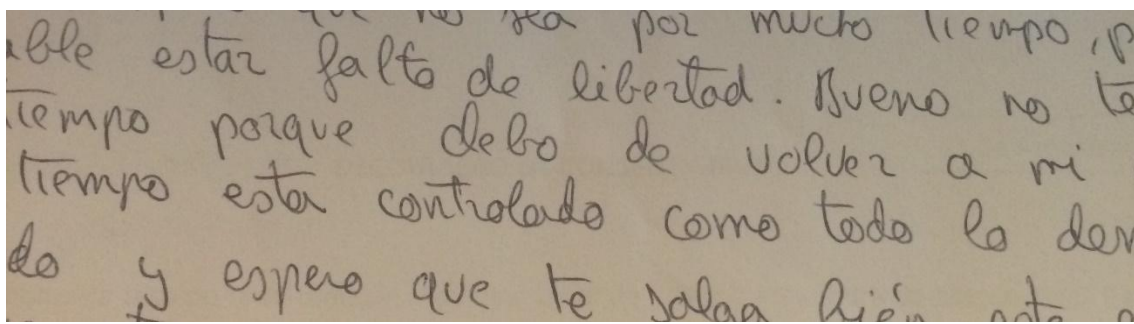 que no sea por mucho tiempo, p
able estar falto de libertad. Bueno no te
Tiempo porque debo de volver a mi
Tiempo esta controlado como todo lo dem
do y espero que te salga bién este